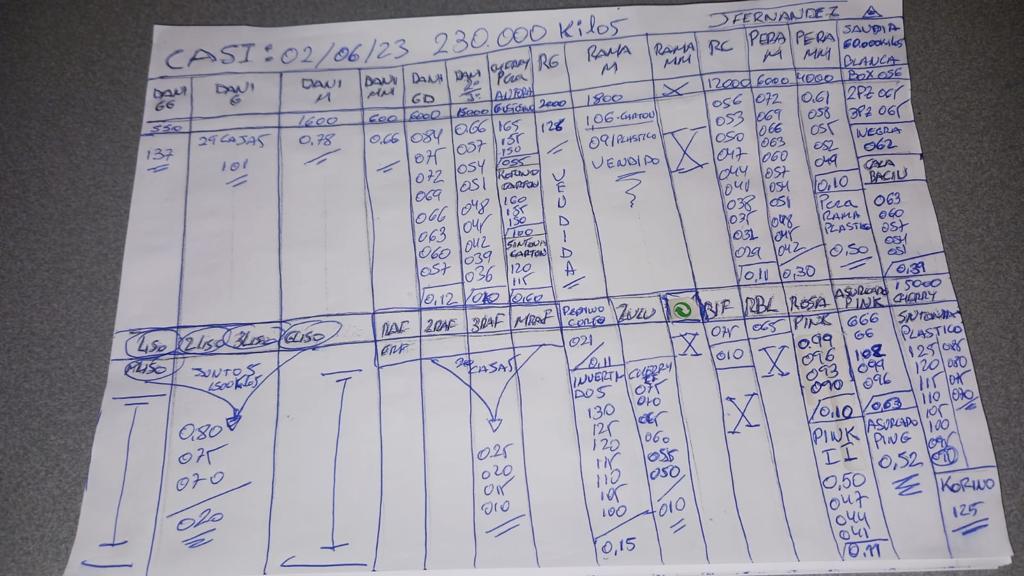 CASI: 02/06/23 230.000 Kilos
JFERNANDEZ
DANI GG
550
137
DANI G
29 CASAS
101
DANI M
1600
0,78
DANI MM
600
0,66
DANI GD
6000
084
075
072
069
066
063
060
057
0,12
DANI
066
057
054
051
048
045
042
039
036
CHERRY PERA
165
155
150
055
CARTON
160
155
150
100
SINTONIA
CARTON
120
115
0,60
RG
2000
128
VENDIDA
RAMA M
1800
1,06-CARTON
091 PLASTICO
VENDIDO
?
RAMA MM
X
X
RC
12000
056
053
050
047
044
041
038
035
031
029
0,11
PERA M
6000
072
069
066
063
060
057
054
051
048
045
042
0,30
PERA MM
4000
0,61
058
055
052
049
0,10
PERA
RAMA
PLASTICO
0,50
SANDIA
BLANCA
BOX 056
2PZ 065
3PZ 065
NEGRA
062
CAJA
063
060
057
054
051
0,31
1LISO
2LISO
3LISO
GLISO
JUNTOS
1500 Kilos
0,80
075
070
020
RAF
2RAF
3RAF
MRAF
CASAS
025
020
015
010
PEPINO
CORTO
021
0,11
130
125
120
115
110
105
100
0,15
CHERRY
075
070
065
060
055
050
010
X
075
010
X
RBL
065
X
ROSA
PINK
0,99
096
093
090
0,10
PINK
II
0,50
047
044
041
0,11
ASURCADO
PINK
666
66
108
099
096
0,63
ASURCADO
PING
0,52
15000
CHERRY
SINTONIA
PLASTICO
125
120
115
110
105
100
095
090
085
080
075
070
KORINO
125